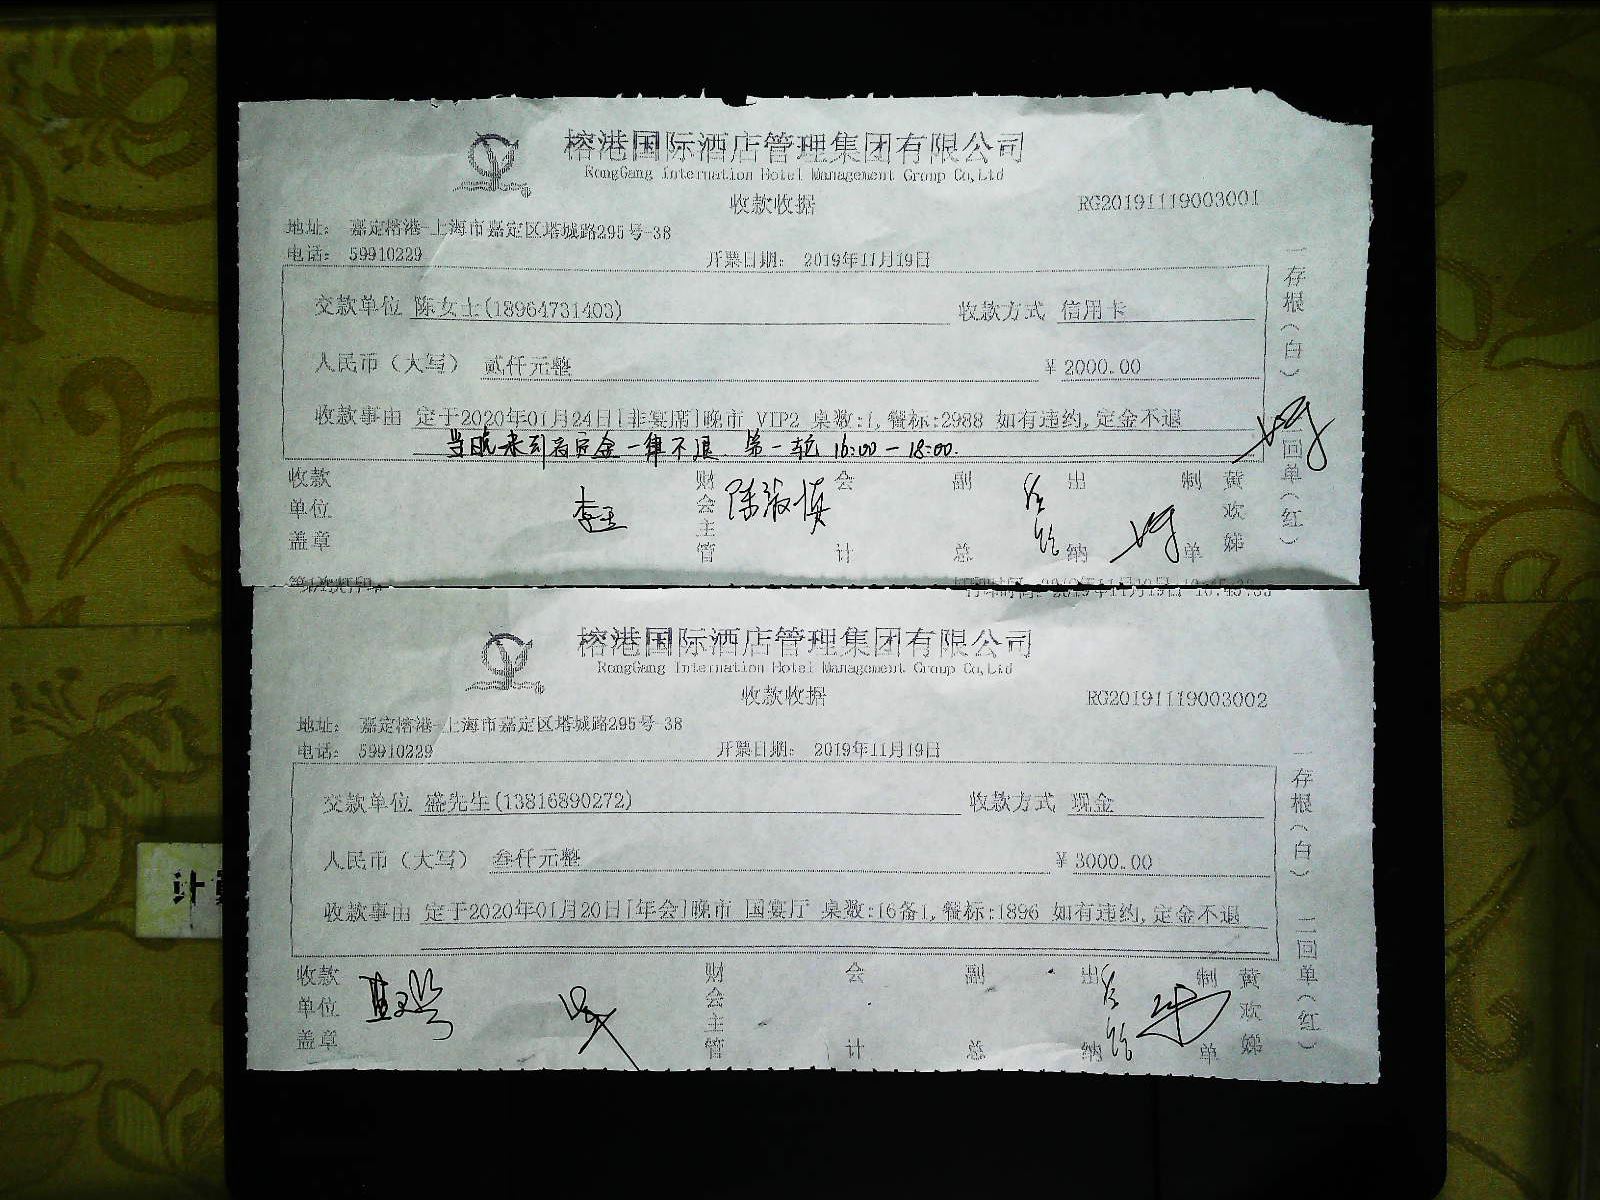 榕港国际酒店管理集团有限公司
RongGang Internation Hotel Management Group Co,Ltd
收款收据
RG20191119003001
地址: 嘉定榕港-上海市嘉定区塔城路295号-38
电话: 59910229 开票日期: 2019年11月19日
交款单位 陈女士(18964731403) 收款方式 信用卡
人民币(大写) 贰仟元整 ¥ 2000.00
收款事由 定于2020年01月24日[非宴席]晚市 VIP2 桌数:1,餐标:2988 如有违约,定金不退
当晚未到店定金一律不退 第一轮 16:00-18:00.
收款单位盖章 财会主管 陈淑慎 会计 副总 出纳 制单 黄欢娣
一存根(白) 二回单(红)
第1次打印 打印时间: 2019年11月19日
榕港国际酒店管理集团有限公司
RongGang Internation Hotel Management Group Co,Ltd
收款收据
RG20191119003002
地址: 嘉定榕港-上海市嘉定区塔城路295号-38
电话: 59910229 开票日期: 2019年11月19日
交款单位 盛先生(13816890272) 收款方式 现金
人民币(大写) 叁仟元整 ¥ 3000.00
收款事由 定于2020年01月20日[年会]晚市 国宴厅 桌数:16备1,餐标:1896 如有违约,定金不退
收款单位盖章 财会主管 会计 副总 出纳 制单 黄欢娣
一存根(白) 二回单(红)
计